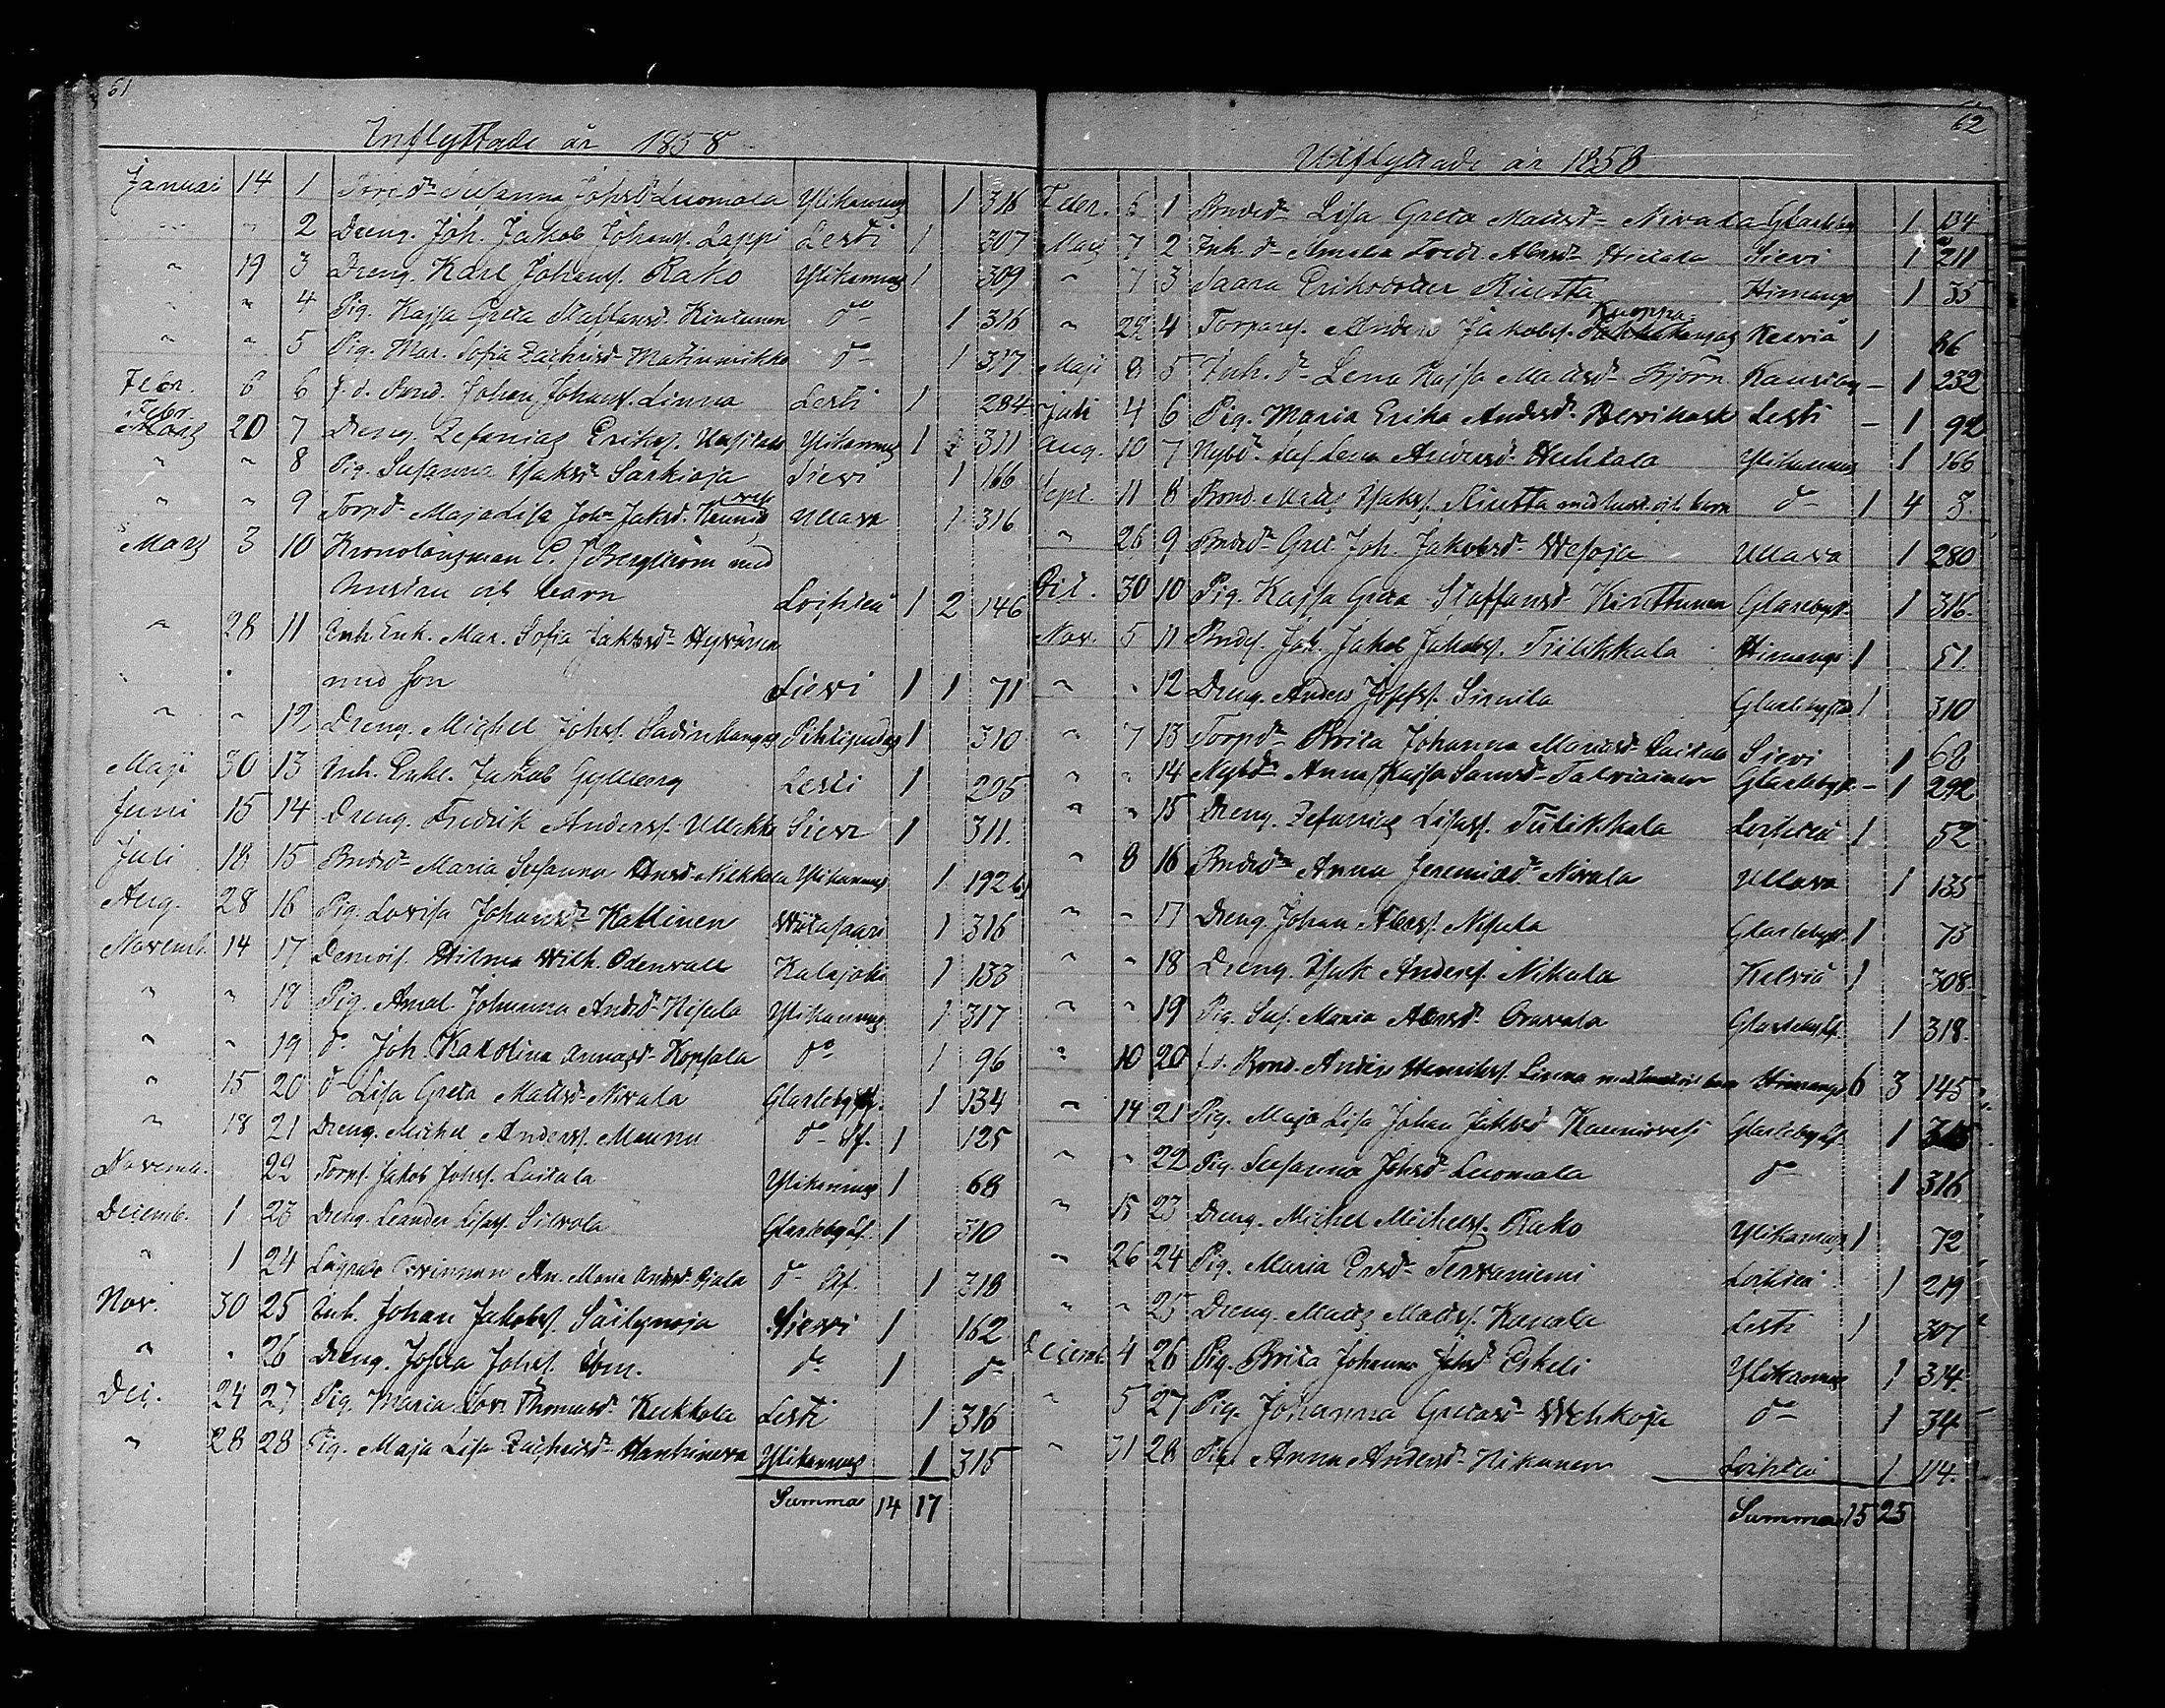 61
Inflyttade år 1858
Januari 14 1 Torp.dr Susanna Johsdr Luomala Ylikannus 1 316
" " 2 Dreng. Joh. Jakob Johanss. Lappi Lesti 1 307
" 19 3 Dreng. Karl Johanss. Rako Ylikannus 1 309
" " 4 Pig. Kajsa Greta Staffansd. Kirttunen do 1 316
" " 5 Pig. Mar. Sofia Zachrisdr Matinmikko do 1 317
Febr. 6 6 f.d. Bond. Johan Johanss. Linna Lesti 1 284
Febr. 20 7 Dreng. Zefanias Eriks. Ylikannus 1 311
" " 8 Pig. Susanna Isaksdr Sarkioja Sievi 1 166
" " 9 Torpdr Maja Lisa Johs Jaksdr Kaunisvesi Ullava 1 316
Mars 3 10 Kronolänsman C. J. Bergström med
hustru och barn Lochteå 1 2 146
" 28 11 Inh. Enk. Mar. Sofia Jakobsdr Hyvönen
med son Sievi 1 1 71
" " 12 Dreng. Michel Johss. Sadinkangas Pihtipudas 1 310
Maji 30 13 Inh. Enkl. Jakob Gylleberg Lesti 1 295
Juni 15 14 Dreng. Fredrik Anderss. Ullakko Sievi 1 311.
Juli 18 15 Bndedr Maria Susanna Andsd. Niekkola Ylikannus 1 192
Aug. 28 16 Pig. Lovisa Johansdr Kallinen Wiitasaari 1 316
Novemb. 14 17 Demois. Hilma Wilh. Odenvall Kalajoki 1 133
" " 18 Pig. Amal. Johanna Andsdr Nisula Ylikannus 1 317
" " 19 do Joh. Karolina Annasdr Kopsala do 1 96
" 15 20 do Lisa Greta Mattsdr Nivala Glarleby 1 134
" 18 21 Dreng. Michel Anderss. Maunu do Lf. 1 125
Novemb. 22 Torps. Jakob Johss. Laitala Ylikannus 1 68
Decemb. 1 23 Dreng. Leander Lisass. Silvola Glarleby Lf. 1 310
" 1 24 Lagrade Qvinnan An. Maria Andsd. Ojala do Lf. 1 318
Nov. 30 25 Inh. Johan Jakobs. Säilynoja Sievi 1 162
" " 26 Dreng. Josua Johss. do 1 do
Dec. 24 27 Pig. Maria Lovs Thomasdr Kukkola Lesti 1 316
" 28 28 Pig. Maja Lisa Zachrisdr Hantuneva Ylikannus 1 315
Summa 14 17
62
Utflyttade år 1858
Febr. 6 1 Bndedr Lisa Greta Mattsdr Nivala Glarleby 1 134
Mars 7 2 Inh. dr Amalia Fredr. Abrsdr Hietala Sievi 1 211
" 7 3 Saara Eriksdotter Riutta Himango 1 35
" 29 4 Torpares. Anders Jakobss. Kuoppa- Kelviå 1 86
Maji 8 5 Inh. dr Lena Kajsa Mattsdr Björn Kaustby - 1 232
Juli 4 6 Pig. Maria Erika Andsdr Lesti - 1 92
Aug. 10 7 Nybdr Sus Lena Andersd. Huhtala Ylikannus 1 166
Sept. 11 8 Bond. Matts Isakss. Riutta med hust. och barn do 1 4 3
" 26 9 Bndedr Gret. Joh. Jakobsdr Wesoja Ullava 1 280
Oct. 30 10 Pig. Kajsa Greta Staffansd. Kirttunen Glarleby 1 316.
Nov. 5 11 Bndes. Joh. Jakob Jakobss. Tiilikkala Himango 1 51.
" " 12 Dreng. Anders Josefss. Siirila Glarleby 1 310
" 7 13 Torpdr Brita Johanna Mariasdr Laitala Sievi 1 68
" " 14 Nybdr Anna Kajsa Samsdr Talviainen Glarleby - 1 292
" " 15 Dreng. Zefanias Lisass. Tiilikkala Lochteå 1 52
" 8 16 Bndedr Anna Jeremiasdr Nivala Ullava 1 135
" " 17 Dreng. Johan Abrss. Nisula Glarleby 1 73
" " 18 Dreng. Isak Anderss. Nikula Kelviå 1 308.
" " 19 Pig. Sus. Maria Abrsdr Oravala Glarleby Lf. 1 318.
" 10 20 f.d. Bond. Anders Henrikss. Linna med hust. och barn Himango 6 3 145
" 14 21 Pig. Maja Lisa Johan Jaksdr Kaunisvesi Glarleby Lf. 1 315
" " 22 Pig. Susanna Johsdr Luomala do 1 316
" 15 23 Dreng. Michel Michelss. Rako Ylikannus 1 72
" 26 24 Pig. Maria Ersdr Tervaniemi Lochteå 1 219
" " 25 Dreng. Matts Matss. Kanala Lesti 1 307
Decemb. 4 26 Pig. Brita Johanna Johsdr Eskeli Ylikannus 1 314.
" 5 27 Pig. Johanna Gretasdr Wehkoja do 1 34
" 31 28 Pig. Anna Andersdr Nikanen Lochteå 1 114.
Summa 15 25